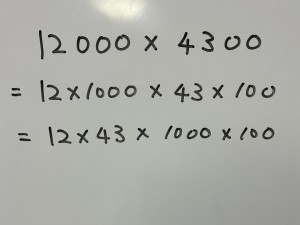 12000 × 4300
= 12×1000 × 43 × 100
= 12×43 × 1000 × 100